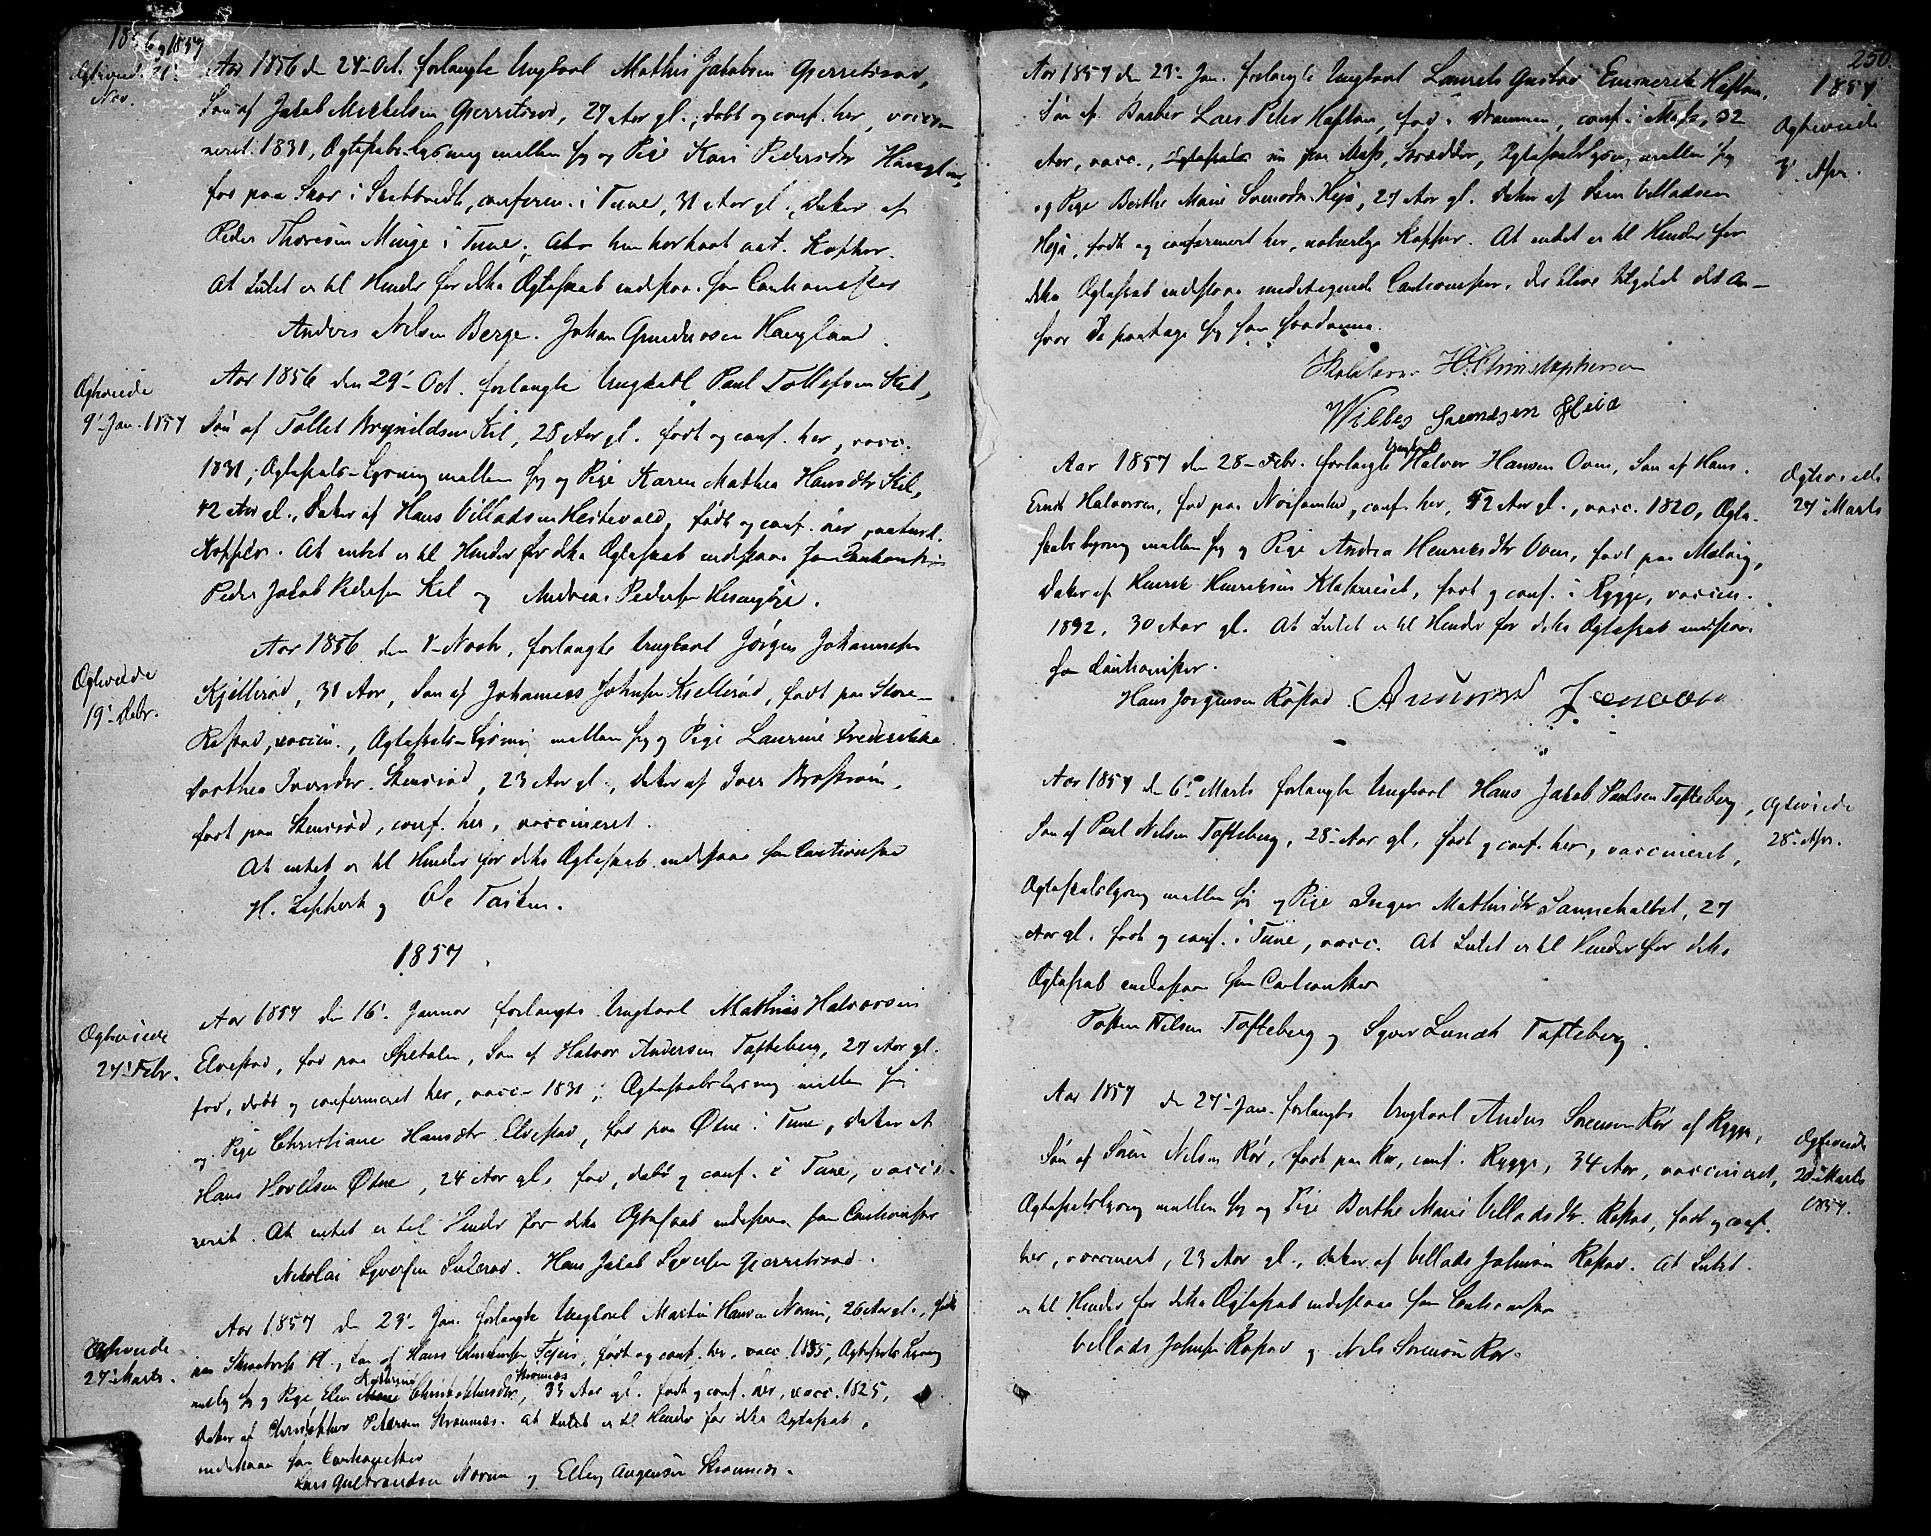 1856 og 1857
Ægteviede 21'
Nov.
Aar 1856 den 24' Oct. forlangte Ungkarl Mathis Jakobsen Gjerritsrød,
Søn af Jakob Mikkelsen Gjerritsrød, 27 Aar gl., døbt og conf. her, vacci-
neret 1831, Ægteskabs-Lysning mellem sig og Pige Kari Pedersdtr Haugland,
fød paa Skor i Skibtvedt, conferm. i Tune, 31 Aar gl., Datter af
Peder Thoresen Minge i Tune;
At Intet er til Hinder for dette Ægteskab indestaae som Cautionister
Anders Nilsen Berge. Johan Gundersen Haugland.
Ægteviede
9' Jan. 1857
Aar 1856 den 29' Oct. forlangte Ungkarl Paul Tollefsen Kil,
Søn af Tollef Brynildsen Kil, 28 Aar gl. født og conf. her, vacc.
1831, Ægteskabs-Lysning mellem sig og Pige Karen Mathea Hansdtr Kil,
42 Aar gl., Datter af Hans Villadsen Hestevold, født og conf. her, naturl.
Kopper. At intet er til Hinder for dette Ægteskab indestaae som Cautionister
Peder Jakob Pedersen Kil og Andreas Pedersen
Ægteviede
19' Debr.
Aar 1856 den Novbr, forlangte Ungkarl Jørgen Johannesen
Kjellerød, 31 Aar, Søn af Johannes Johnsen Kjellerød, født paa Store-
Rafstad, vaccin., Ægteskabs-Lysning mellem sig og Pige Laurine Frederikke
Dorthea Iversdtr. Stensrød, 23 Aar gl., Datter af Iver
født paa Stensrød, conf. her, vaccineret.
At intet er til Hinder for dette Ægteskab indestaae som Cautionister
H. og Ole
1857.
Ægteviede
27' Febr.
Aar 1857 den 16' Januar forlangte Ungkarl Mathias Halvorsen
Elvestad, fød paa Spetalen, Søn af Halvor Andersen Tofteberg, 27 Aar gl.
fød, døbt og confirmeret her, vacc. 1831; Ægteskabslysning mellem sig
og Pige Christiane Hansdtr Elvestad, fød paa Ødne i Tune, Datter af
Hans Hovelsen Ødne, 24 Aar gl., fød, døbt og conf. i Tune, vacci-
neret. At intet er til Hinder for dette Ægteskab indestaae som Cautionister
Nikolai Syversen Sulerød. Hans Jakob Syversen Gjerritsrød.
Ægteviede
27' Marts.
Aar 1857 den 23' Jan. forlangte Ungkarl Martin Hansen Norum, 26 Aar gl., født
paa Skraatorp Pl., Søn af Hans Christensen født og conf. her, vacc. 1835, Ægteskabs Lysning
Kathrine Strømnæs
mellem sig og Pige Elen Marie Christophersdtr, 33 Aar gl. født og conf. her, vacc. 1825,
Datter af Christopher Pedersen Strømnæs. At Intet er til Hinder for dette Ægteskab,
indestaae som Cautionister
Lars Gulbrandsen Norum og Elling Augensen Strømnæs.
250.
1857
Ægteviede
3' Apr.
Aar 1857 den 23' Jan. forlangte Ungkarl Laurits Gustav Emmerik Hoftom,
Søn af Barber Lars Peter Hoftom, fød i Drammen, conf. i Moss, 32
Aar, vacc., Skrædder, Ægteskabslysning mellem sig
og Pige Berthe Marie Svendsdtr Heja, 27 Aar gl. Datter af Sven Villadsen
Heja, født og confermert her, naturlige Kopper. At intet er til Hinder for
dette Ægteskab indestaae undertegnede Cautionister, der blive Skyldet det An-
svar de paatage sig som saadanne.
H. Christophersen
Willes Svendsen Heia
Ægteviede
27' Marts
Ungkarl
Aar 1857 den 28' Febr. forlangte Halvor Hansen Oven, Søn af Hans
Ernst Halvorsen, fød paa conf. her, 52 Aar gl., vacc. 1820, Ægte-
skabs lysning mellem sig og Pige Andrea Henriksdtr Oven, født paa Malvig,
Datter af Henrik Henriksen født og conf. i Rygge, vaccin.
1832, 30 Aar gl. At Intet er til Hinder for dette Ægteskab indestaae
som Cautionister.
Hans Jørgensen Rafstad.
Ægteviede
28' Apr.
Aar 1857 den 6' Marts forlangte Ungkarl Hans Jakob Paulsen Tofteberg,
Søn af Paul Nilsen Tofteberg, 28 Aar gl. født og conf. her, vaccineret,
Ægteskabslysning mellem sig og Pige Inger Mathisdtr Sannehaltet, 27
Aar gl. født og conf. i Tune, vacc. At Intet er til Hinder for dette
Ægteskab indestaae som Cautionister
Nilsen Tofteberg og Syver Lundt Tofteberg.
Ægteviede
20' Marts
1857.
Aar 1857 den 27' Jan. forlangte Ungkarl Anders Sørensen Rør af Rygge,
Søn af Søren Nilsen Rør, født paa Rør, conf. i Rygge, 34 Aar, vaccineret,
Ægteskabslysning mellem sig og Pige Berthe Marie Villadsdtr. Rafstad, født og conf.
her, vaccinert, 23 Aar gl., Datter af Villads Johnsen Rafstad. At Intet
er til Hinder for dette Ægteskab indestaae som Cautionister
Villads Johnsen Rafstad og Nils Sørensen Rør.